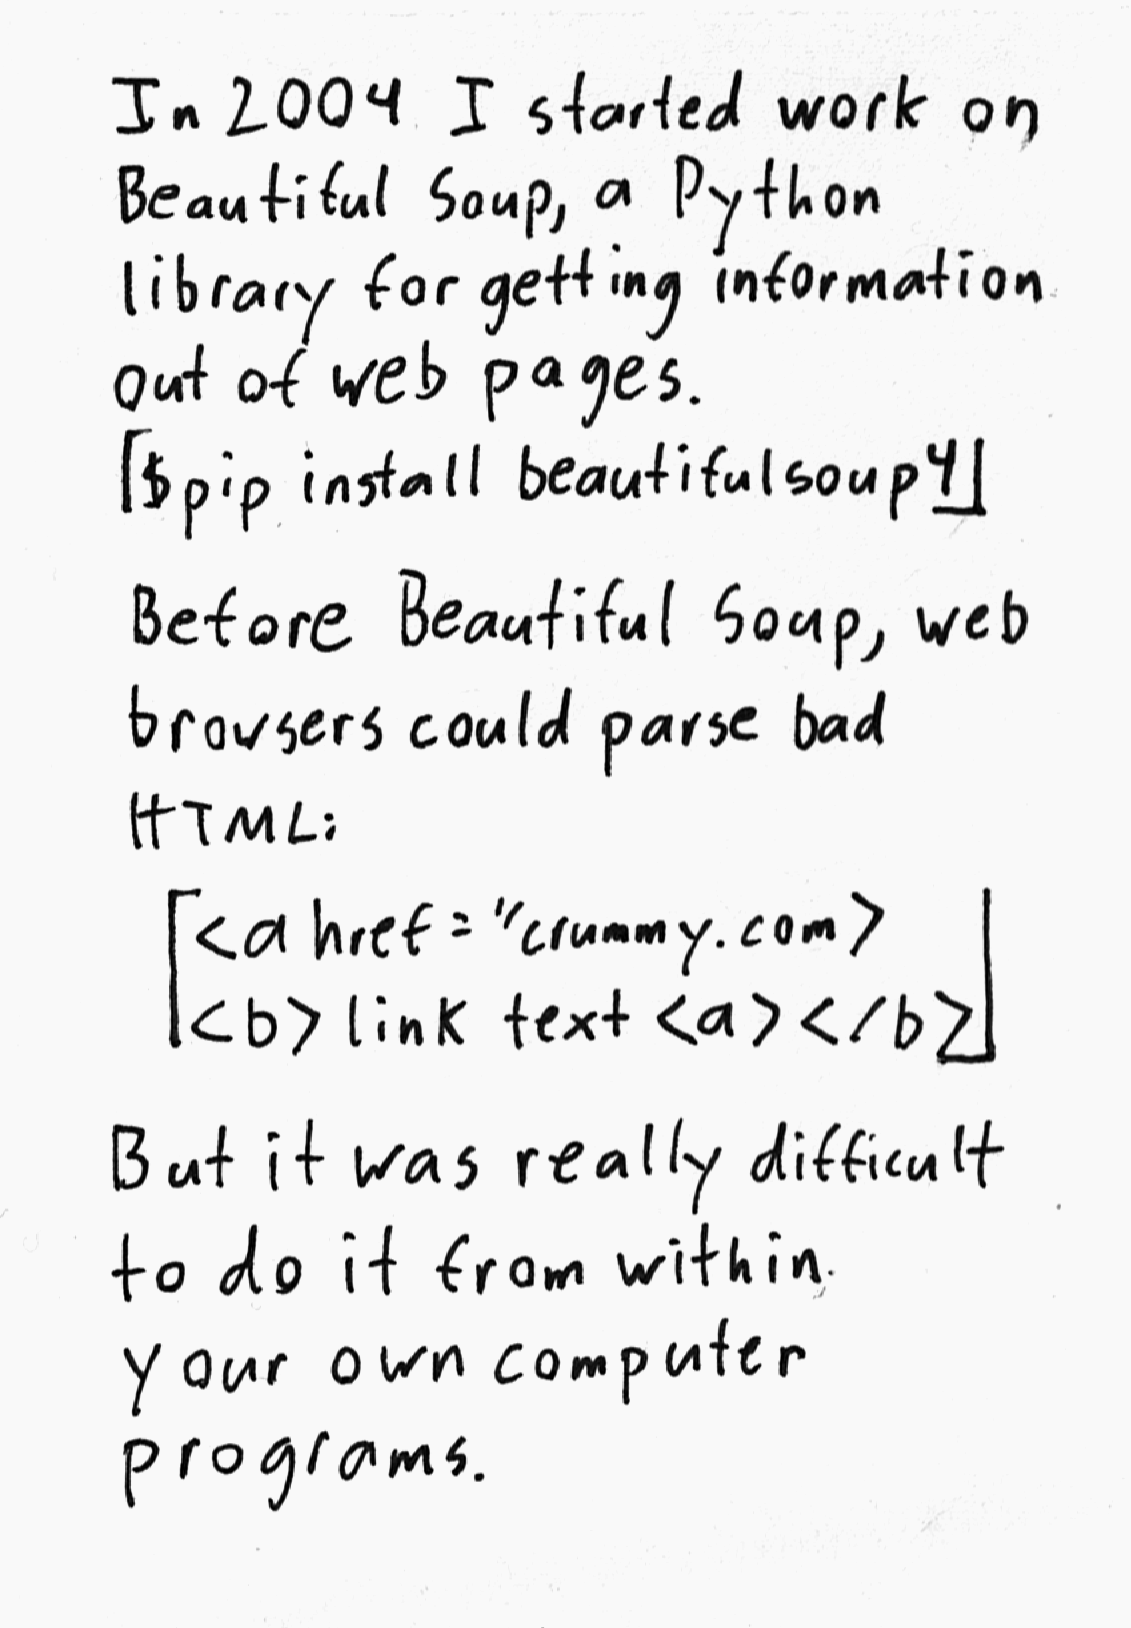 In 2004 I started work on
Beautiful Soup, a Python
library for getting information
out of web pages.
⌈$pip install beautifulsoup4⌋
Before Beautiful Soup, web
browsers could parse bad
HTML:
⌈<a href="crummy.com>
<b> link text <a></b>⌋
But it was really difficult
to do it from within
your own computer
programs.